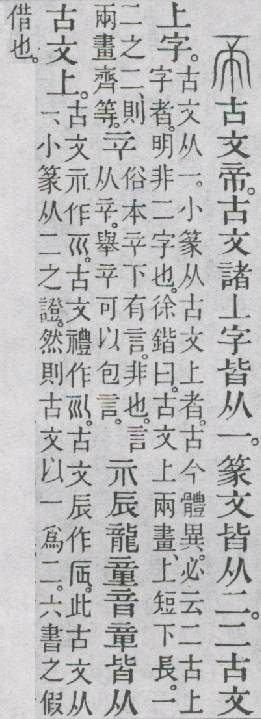 古文帝。古文諸上字皆从一。篆文皆从二。二古文
上字。
古文从一。小篆从古文上者。古今體異。必云二古上
字者。明非二字也。徐鍇曰。古文上兩畫、上短下長。一
二之二、則
兩畫齊等。
䇂
俗本䇂下有言。非也。言
从䇂。舉䇂可以包言。
示辰龍童音章皆从
古文上。
古文示作。古文禮作。古文辰作𠨷。此古文从
一、小篆从二之證。然則古文以一爲二。六書之假
借也。